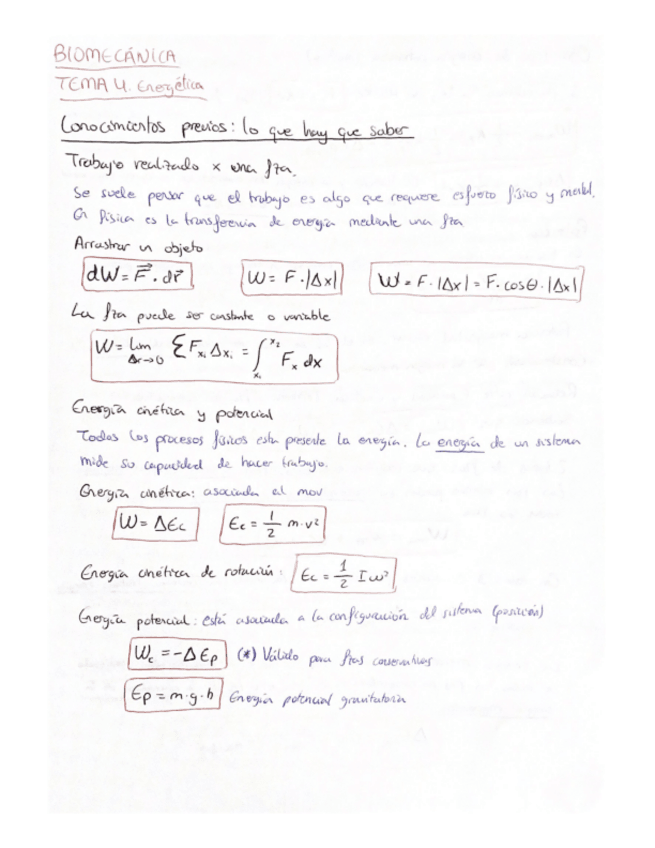 BIOMECÁNICA
TEMA 4. Energética
Conocimientos previos: lo que hay que saber
Trabajo realizado x una fza.
Se suele pensar que el trabajo es algo que requiere esfuerzo físico y mental.
En física es la transferencia de energía mediante una fza
Arrastrar un objeto
dW = F⃗ · dr⃗ W = F · |Δx| W = F · |Δx| = F · cosθ · |Δx|
La fza puede ser constante o variable
W = lim Δr→0 Σ Fxᵢ Δxᵢ = ∫ x₁ x₂ Fx dx
Energía cinética y potencial
Todos los procesos físicos esta presente la energía. La energía de un sistema
mide su capacidad de hacer trabajo.
Energía cinética: asociada al mov
W = ΔEc Ec = 1/2 m·v²
Energía cinética de rotación: Ec = 1/2 I ω²
Energía potencial: está asociada a la configuración del sistema (posición)
Wc = -ΔEp (*) Válido para fzas conservativas
Ep = m·g·h Energía potencial gravitatoria